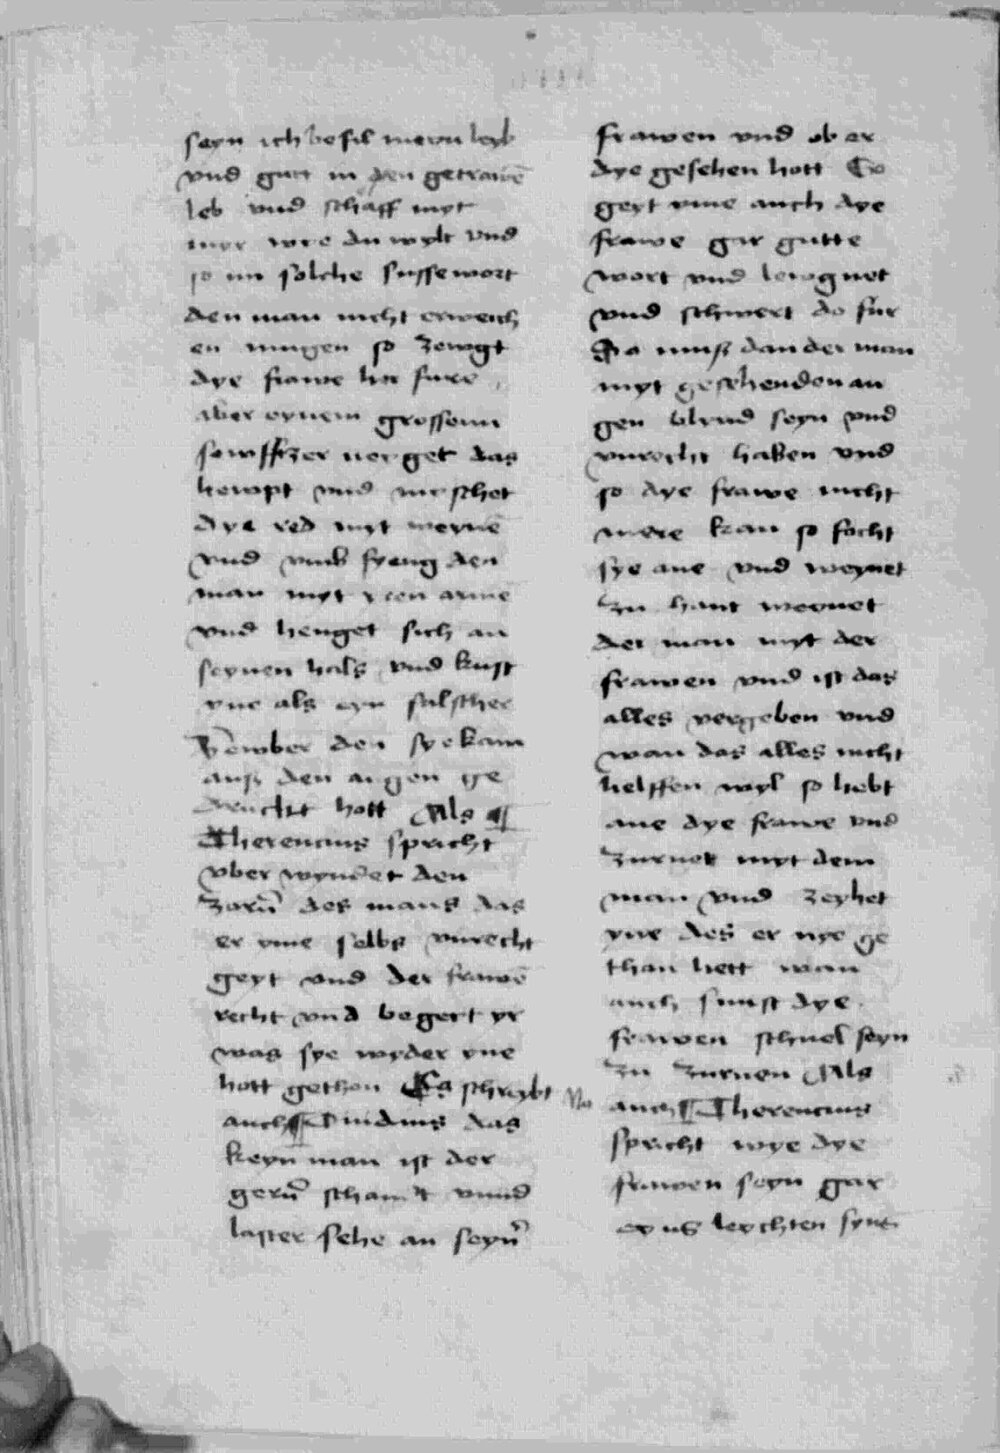 seyn ich befil meyn leyb
vnd gutt in den getrawē
leb vnd schaff myt
myr wye du wylt vnd
so im solche susse wort
den man nicht erweich
en mugen so zewgt
dye frawe her fure
aber eynem grossenn
sewfftzer verget das
hewpt vnd mischet
dye red myt weynē
vnd vmb fyeng den
man myt yren armē
vnd henget sich an
seynen hals vnd kust
yne als eyn falscher
den sye kam
auß den augen ge
druckt hott Als ¶
Therencius spricht
vber wyndet den
zorn̄ des mans das
er yme selbs vnrecht
geyt vnd der frawē
recht vnd begert yr
was sye wyder yne
hott gethon Es schreybt
auch ¶ Ouidius das
keyn man ist der
gern̄ schandt vnnd
laster sehe an seyn̄
frawen vnd ob er
dye gesehen hott So
geyt yme auch dye
frawe gar gutte
wort vnd lewgnet
vnd schwert do fur
Da muß dan der man
myt gesehenden au
gen blynd seyn vnd
vnrecht haben vnd
so dye frawe nicht
mere kan so focht
sye ane vnd weynet
zu hant weynet
der man myt der
frawen vnd ist das
alles vergeben vnd
wan das alles nicht
helffen wyl so hebt
ane dye frawe vnd
zurnet myt dem
man vnd zeyhet
yne des er nye ge
than hett wan
auch sunst dye
frawen schnel seyn
zu zurnen Als
auch ¶ Therencius
spricht wye dye
frawen seyn gar
eyns leychten syns